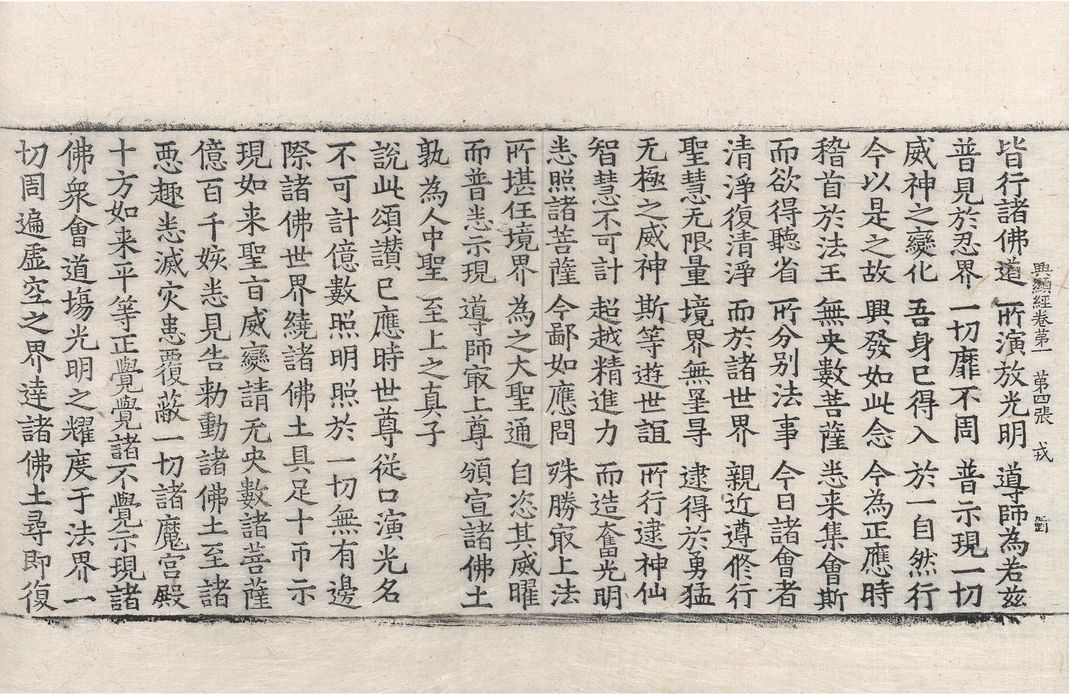 興顯經卷第一 第四張 戎
皆行諸佛道 所演放光明 導師為若茲
普見於忍界 一切靡不周 普示現一切
威神之變化 吾身已得入 於一自然行
今以是之故 興發如此念 今為正應時
稽首於法王 無央數菩薩 悉来集會斯
而欲得聽省 所分别法事 今日諸會者
清淨復清淨 而於諸世界 親近遵修行
聖慧无限量 境界無罣㝵 逮得於勇猛
无極之威神 斯等遊世誼 所行逮神仙
智慧不可計 超越精進力 而造奮光明
悉照諸菩薩 今鄙如應問 殊勝㝡上法
所堪任境界 為之大聖通 自恣其威曜
而普悉示現 導師㝡上尊 頒宣諸佛土
孰為人中聖 至上之真子
說此頌讃已應時世尊從口演光名
不可計億數照明照於一切無有邊
際諸佛世界繞諸佛土具足十帀示
現如来聖百威變請无央數諸菩薩
億百千姟悉見告勑動諸佛土至諸
惡趣悉滅灾患覆蔽一切諸魔宮殿
十方如来平等正覺覺諸不覺示現諸
佛衆會道場光明之耀度于法界一
切周遍虛空之界達諸佛土尋即復